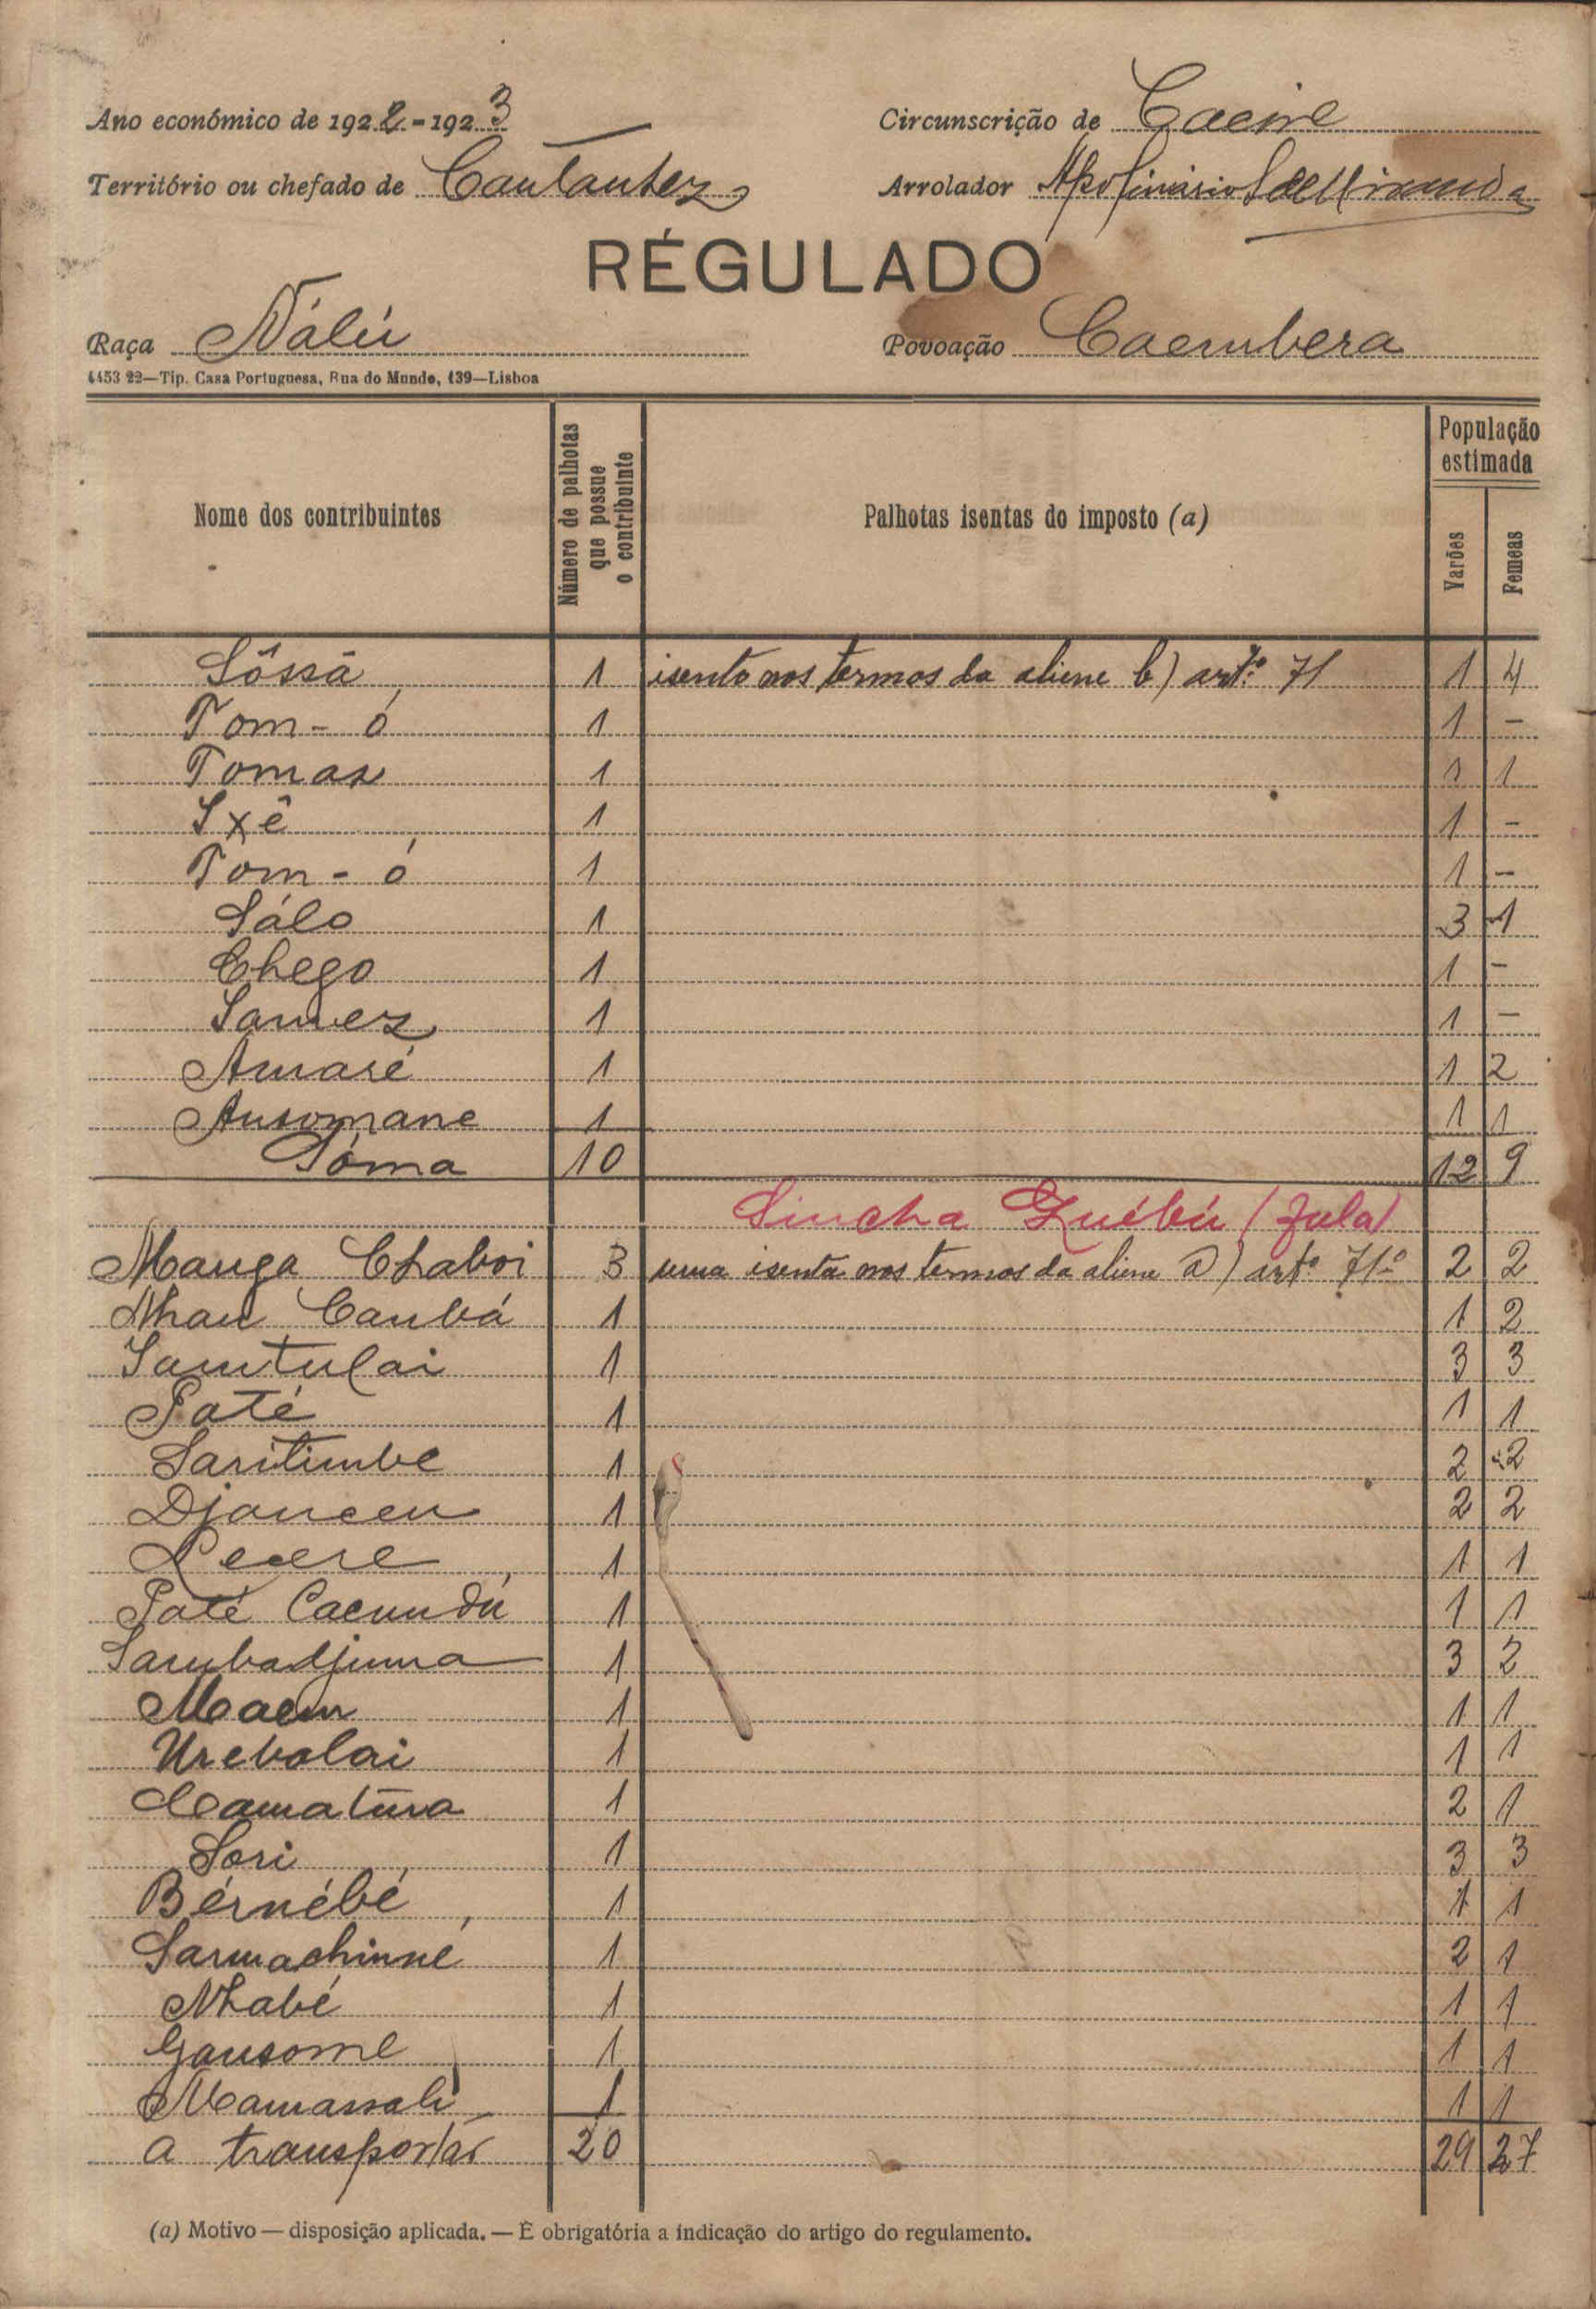 Ano económico de 1922-1923
Circunscrição de Cacine
Território ou chefado de Cantanhez
Arrolador Apolinário S. de Miranda
RÉGULADO
Raça Nálú
Povoação Caembera
4453 22—Tip. Casa Portuguesa, Rua do Mundo, 139—Lisboa
Nome dos contribuintes
Número de palhotas que possue o contribuinte
Palhotas isentas do imposto (a)
População estimada
Varões
Femeas
Sôssã 1 isento nos termos da aliene b) artº 71 1 4
Tom-ó 1 1 -
Tomas 1 1 1
Ixê 1 1 -
Tom-ó 1 1 -
Sálo 1 3 1
Chego 1 1 -
Samez 1 1 -
Amaré 1 1 2
Ansomane 1 1 1
Sôma 10 12 9
Sincha Québú (fula)
Manga Chaboi 3 uma isenta nos termos da aliene a) artº 71º 2 2
Nhau Canbá 1 1 2
Samtulai 1 3 3
Paté 1 1 1
Saritimbe 1 2 2
Djanceu 1 2 2
1 1 1
Paté Caeundú 1 1 1
Sambadjuma 1 3 2
Maem 1 1 1
Urebalai 1 1 1
Camatúra 1 2 1
Sori 1 3 3
Bérnébé 1 1 1
Sarmachinné 1 2 1
Nhabé 1 1 1
Gansome 1 1 1
Mamassali 1 1 1
a transportár 20 29 27
(a) Motivo — disposição aplicada. — É obrigatória a indicação do artigo do regulamento.